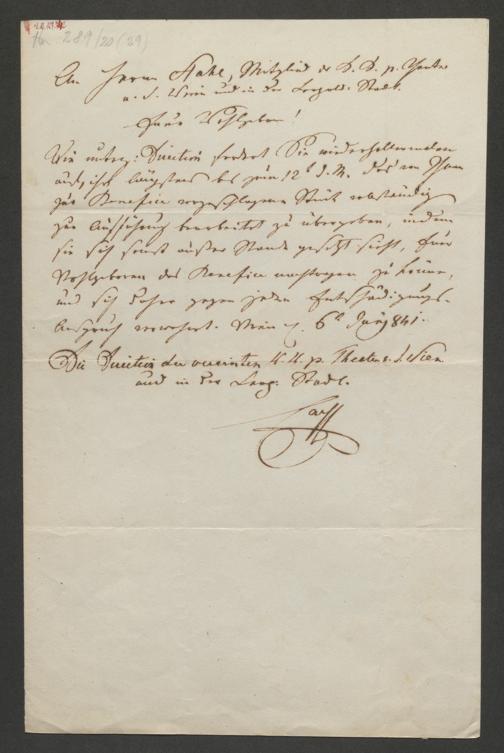 289/20 (29)
An Herrn Stahl, Mitglied der k. k. p. Theater
a. d. Wien und in der Leopold. Stadt.
Euer Wohlgeboren!
Die unterz: Direction fordert Sie wiederholtermalen
auf, ihr längstens bis zum 12t d. M. das von Ihnen
zur Benefice vorgeschlagene Stück vollständig
zur Aufführung bearbeitet zu übergeben, indem
sie sich sonst außer Stande gesetzt sieht, Euer
Wohlgeboren das Benefice zu können,
und sich daher gegen jeden Entschädigungs-
Anspruch verwahrt. Wien 6t 841.
Die Direction der vereinten k. k. p. Theater a. d. Wien
und in der Leop. Stadt.